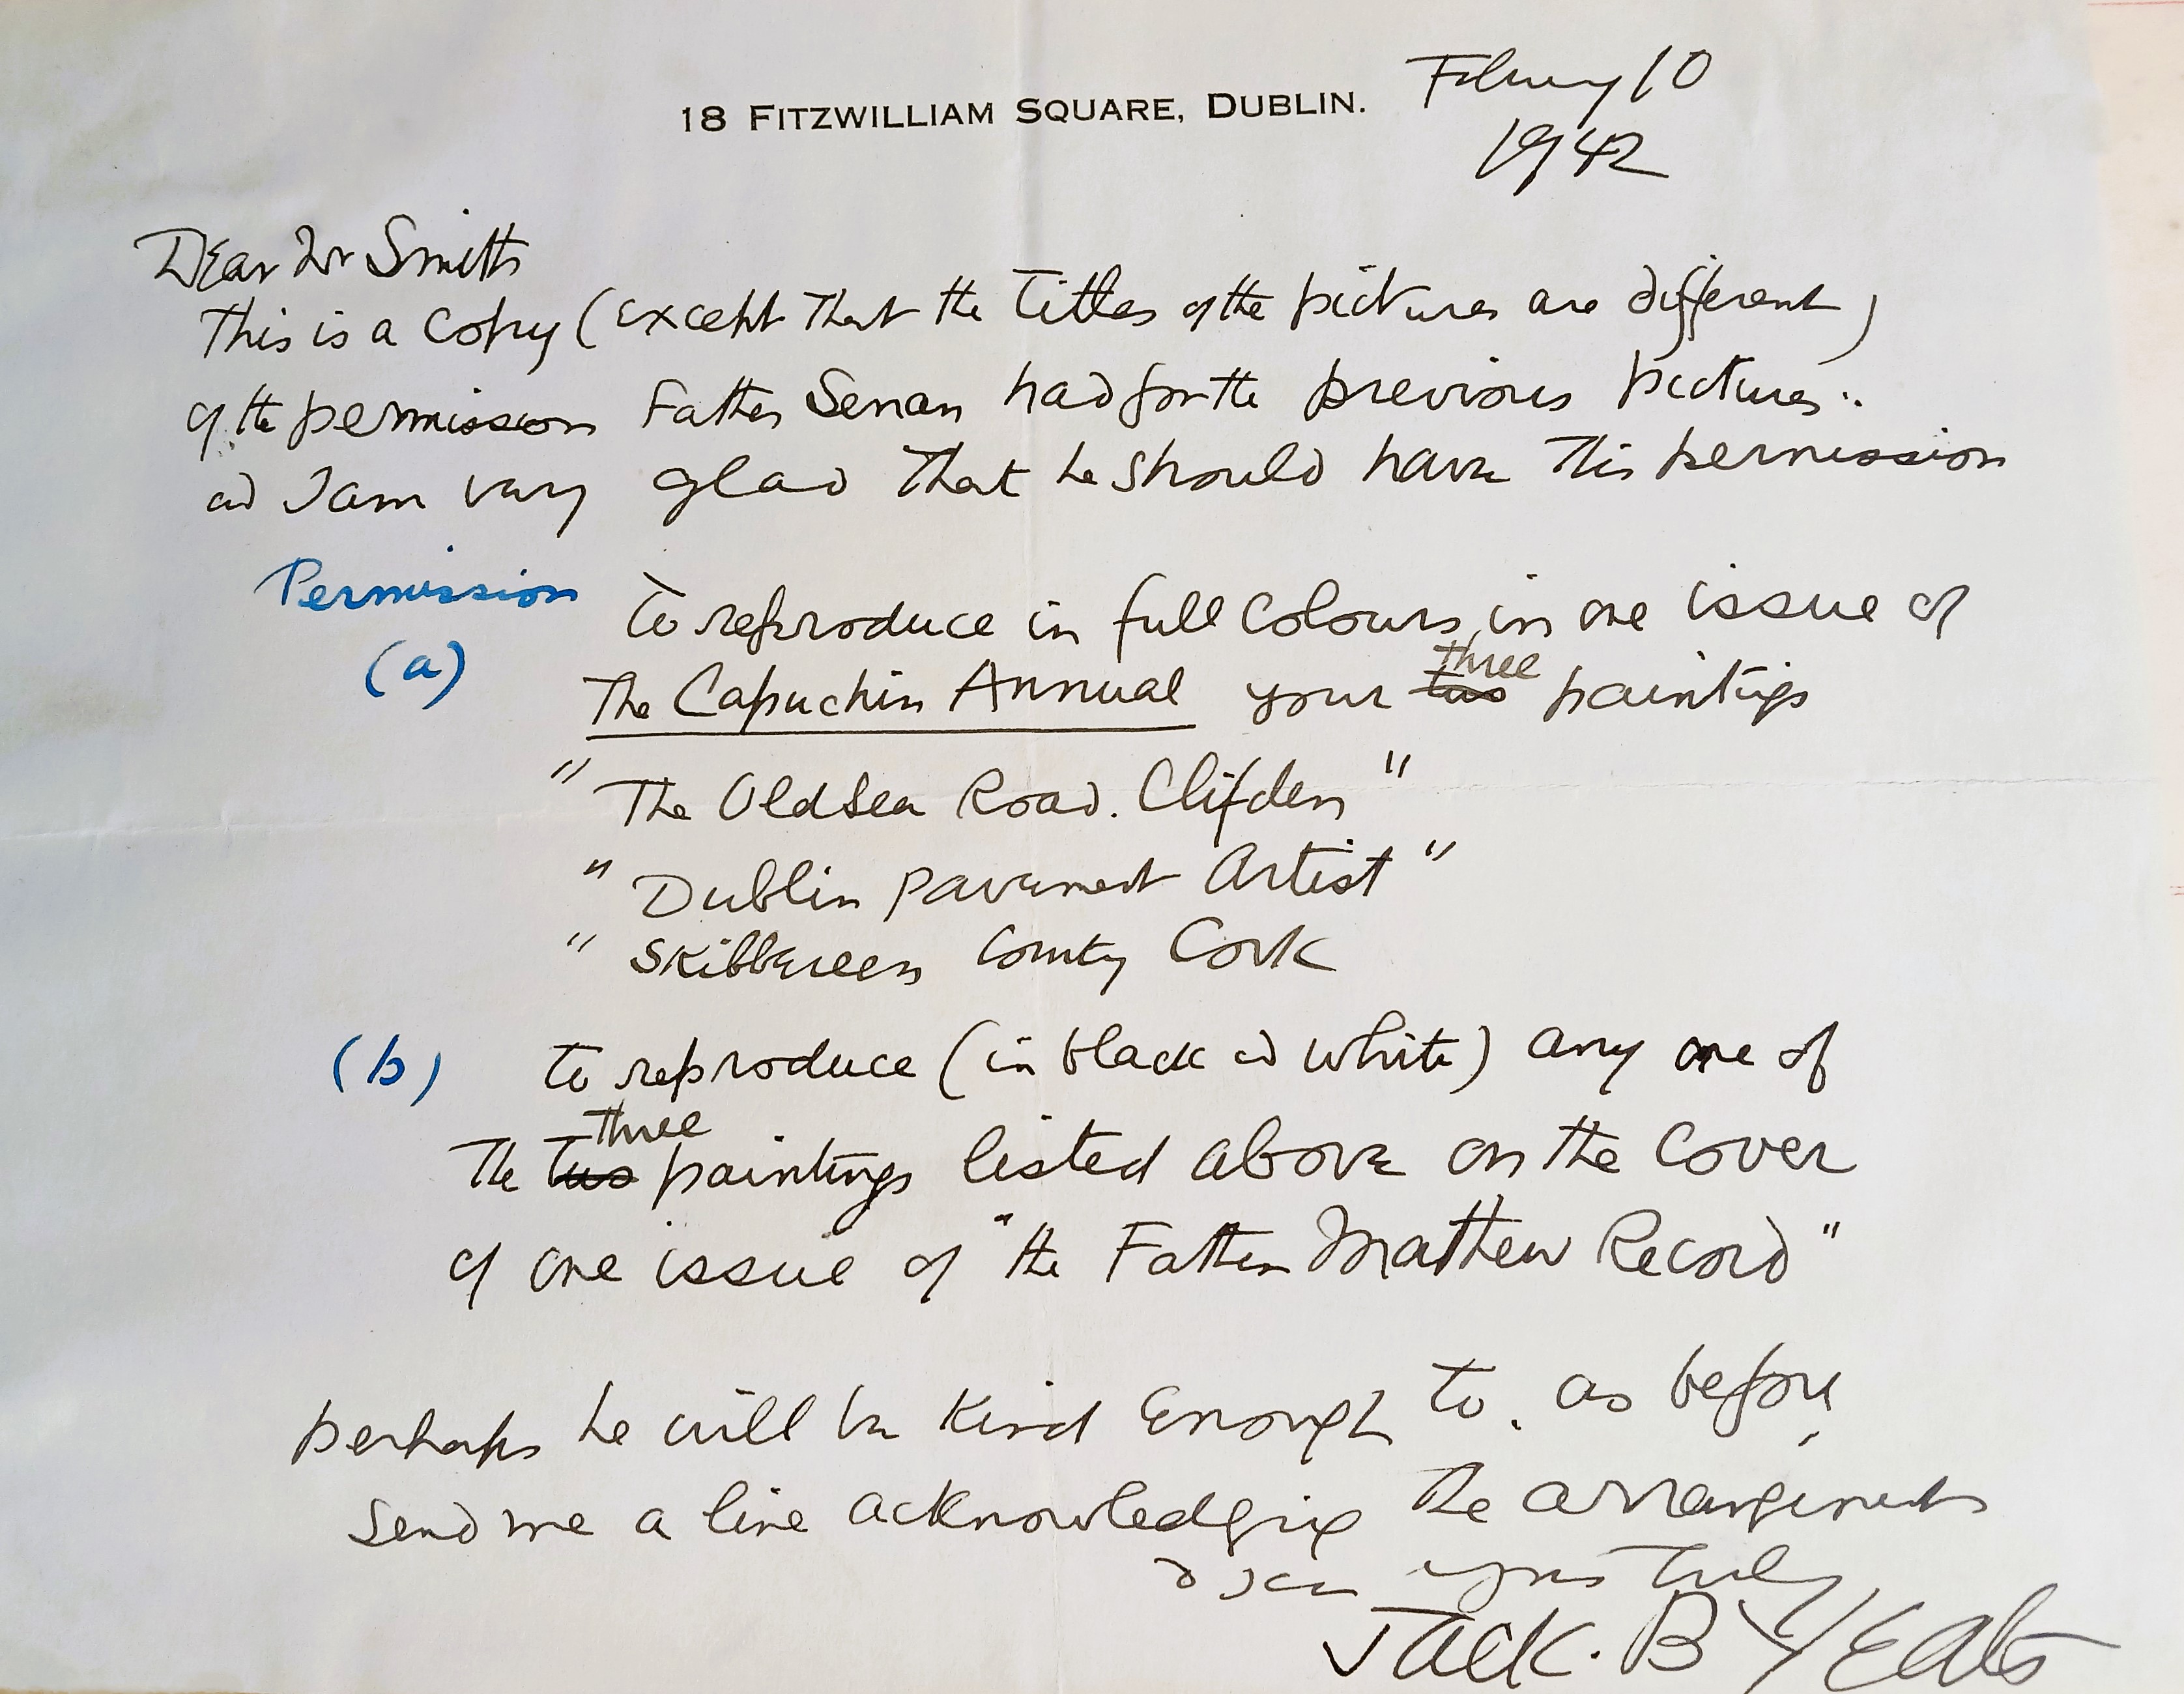 18 FITZWILLIAM SQUARE, DUBLIN. February 10
1942
Dear Mr Smith
This is a copy (except that the titles of the pictures are different)
of the permission Father Senan had for the previous pictures..
and I am very glad that he should have this permission
Permission to reproduce in full colours, in one issue of
(a)
three
The Capuchin Annual your two paintings
"The Old Sea Road. Clifden"
"Dublin pavement Artist"
"Skibbereen County Cork
(b) to reproduce (in black and white) any one of
three
The two paintings listed above on the cover
of one issue of "the Father Mathew Record"
perhaps he will be kind enough to, as before,
send me a line acknowledging the arrangements
yours truly
Jack. B Yeats